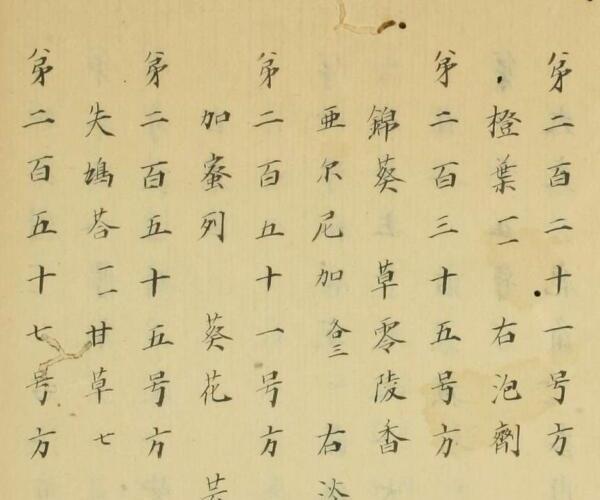 第二百二十一号方
橙葉 二 右泡劑
第二百三十五号方
錦葵 草零陵香
亜尓尼加 各三 右
第二百五十一号方
加蜜列 葵花
第二百五十五号方
失鳩荅 二 甘草 七
第二百五十七号方